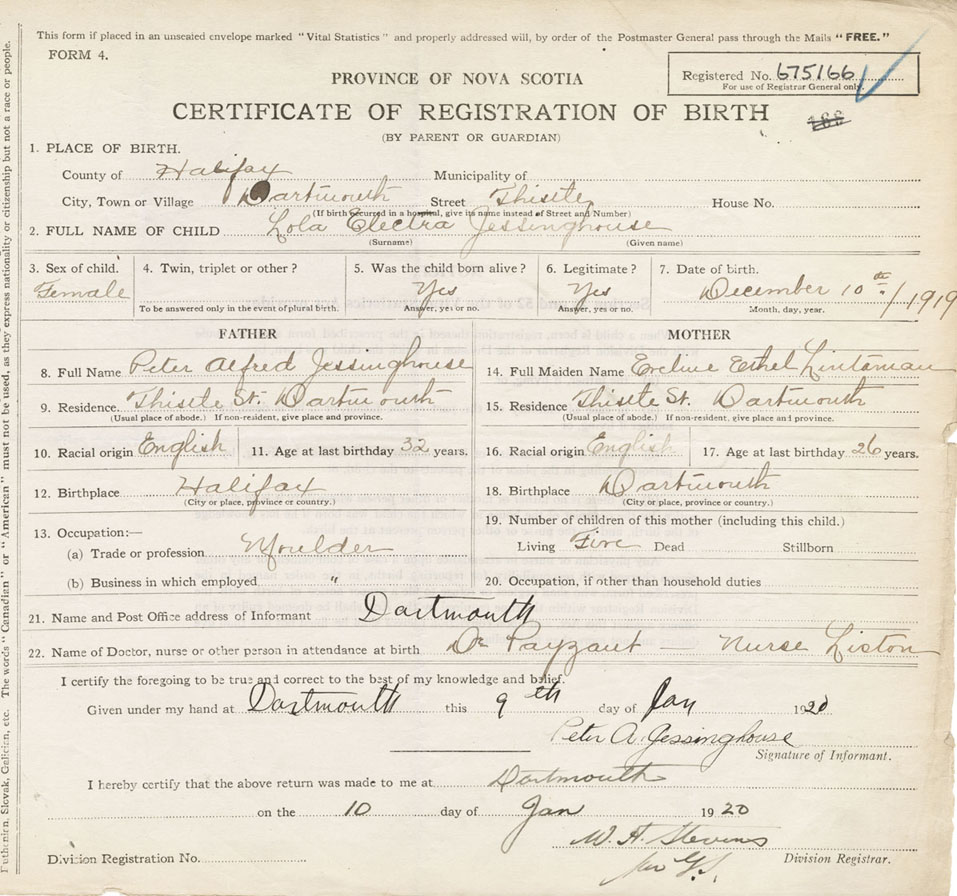 This form if placed in an unsealed envelope marked "Vital Statistics" and properly addressed will, by order of the Postmaster General pass through the Mails "FREE."
FORM 4.
Registered No. 675166
For use of Registrar General only.
PROVINCE OF NOVA SCOTIA
CERTIFICATE OF REGISTRATION OF BIRTH
(BY PARENT OR GUARDIAN)
1. PLACE OF BIRTH.
County of Halifax Municipality of
City, Town or Village Dartmouth Street Thistle House No.
(If birth occurred in a hospital, give its name instead of Street and Number)
2. FULL NAME OF CHILD Lola Electra Jessinghouse
(Surname) (Given name)
3. Sex of child. 4. Twin, triplet or other? 5. Was the child born alive? 6. Legitimate? 7. Date of birth.
Female Yes Yes December 10th / 1919
To be answered only in the event of plural birth. Answer, yes or no. Answer, yes or no. Month, day, year.
FATHER MOTHER
8. Full Name Peter Alfred Jessinghouse 14. Full Maiden Name Eveline Ethel Lintaman
9. Residence Thistle St. Dartmouth 15. Residence Thistle St. Dartmouth
(Usual place of abode.) If non-resident, give place and province. (Usual place of abode.) If non-resident, give place and province.
10. Racial origin English 11. Age at last birthday 32 years. 16. Racial origin English 17. Age at last birthday 26 years.
12. Birthplace Halifax 18. Birthplace Dartmouth
(City or place, province or country.) (City or place, province or country.)
13. Occupation:— 19. Number of children of this mother (including this child.)
(a) Trade or profession Moulder Living Five Dead Stillborn
(b) Business in which employed " 20. Occupation, if other than household duties
21. Name and Post Office address of Informant Dartmouth
22. Name of Doctor, nurse or other person in attendance at birth Dr Payzant — Nurse Liston
I certify the foregoing to be true and correct to the best of my knowledge and belief.
Given under my hand at Dartmouth this 9th day of Jan 1920
Peter A. Jessinghouse
Signature of Informant.
I hereby certify that the above return was made to me at Dartmouth
on the 10 day of Jan 1920
W. A. Stevens
Division Registration No. Division Registrar.
Ruthenian, Slovak, Galician, etc. The words "Canadian" or "American" must not be used, as they express nationality or citizenship but not a race or people.